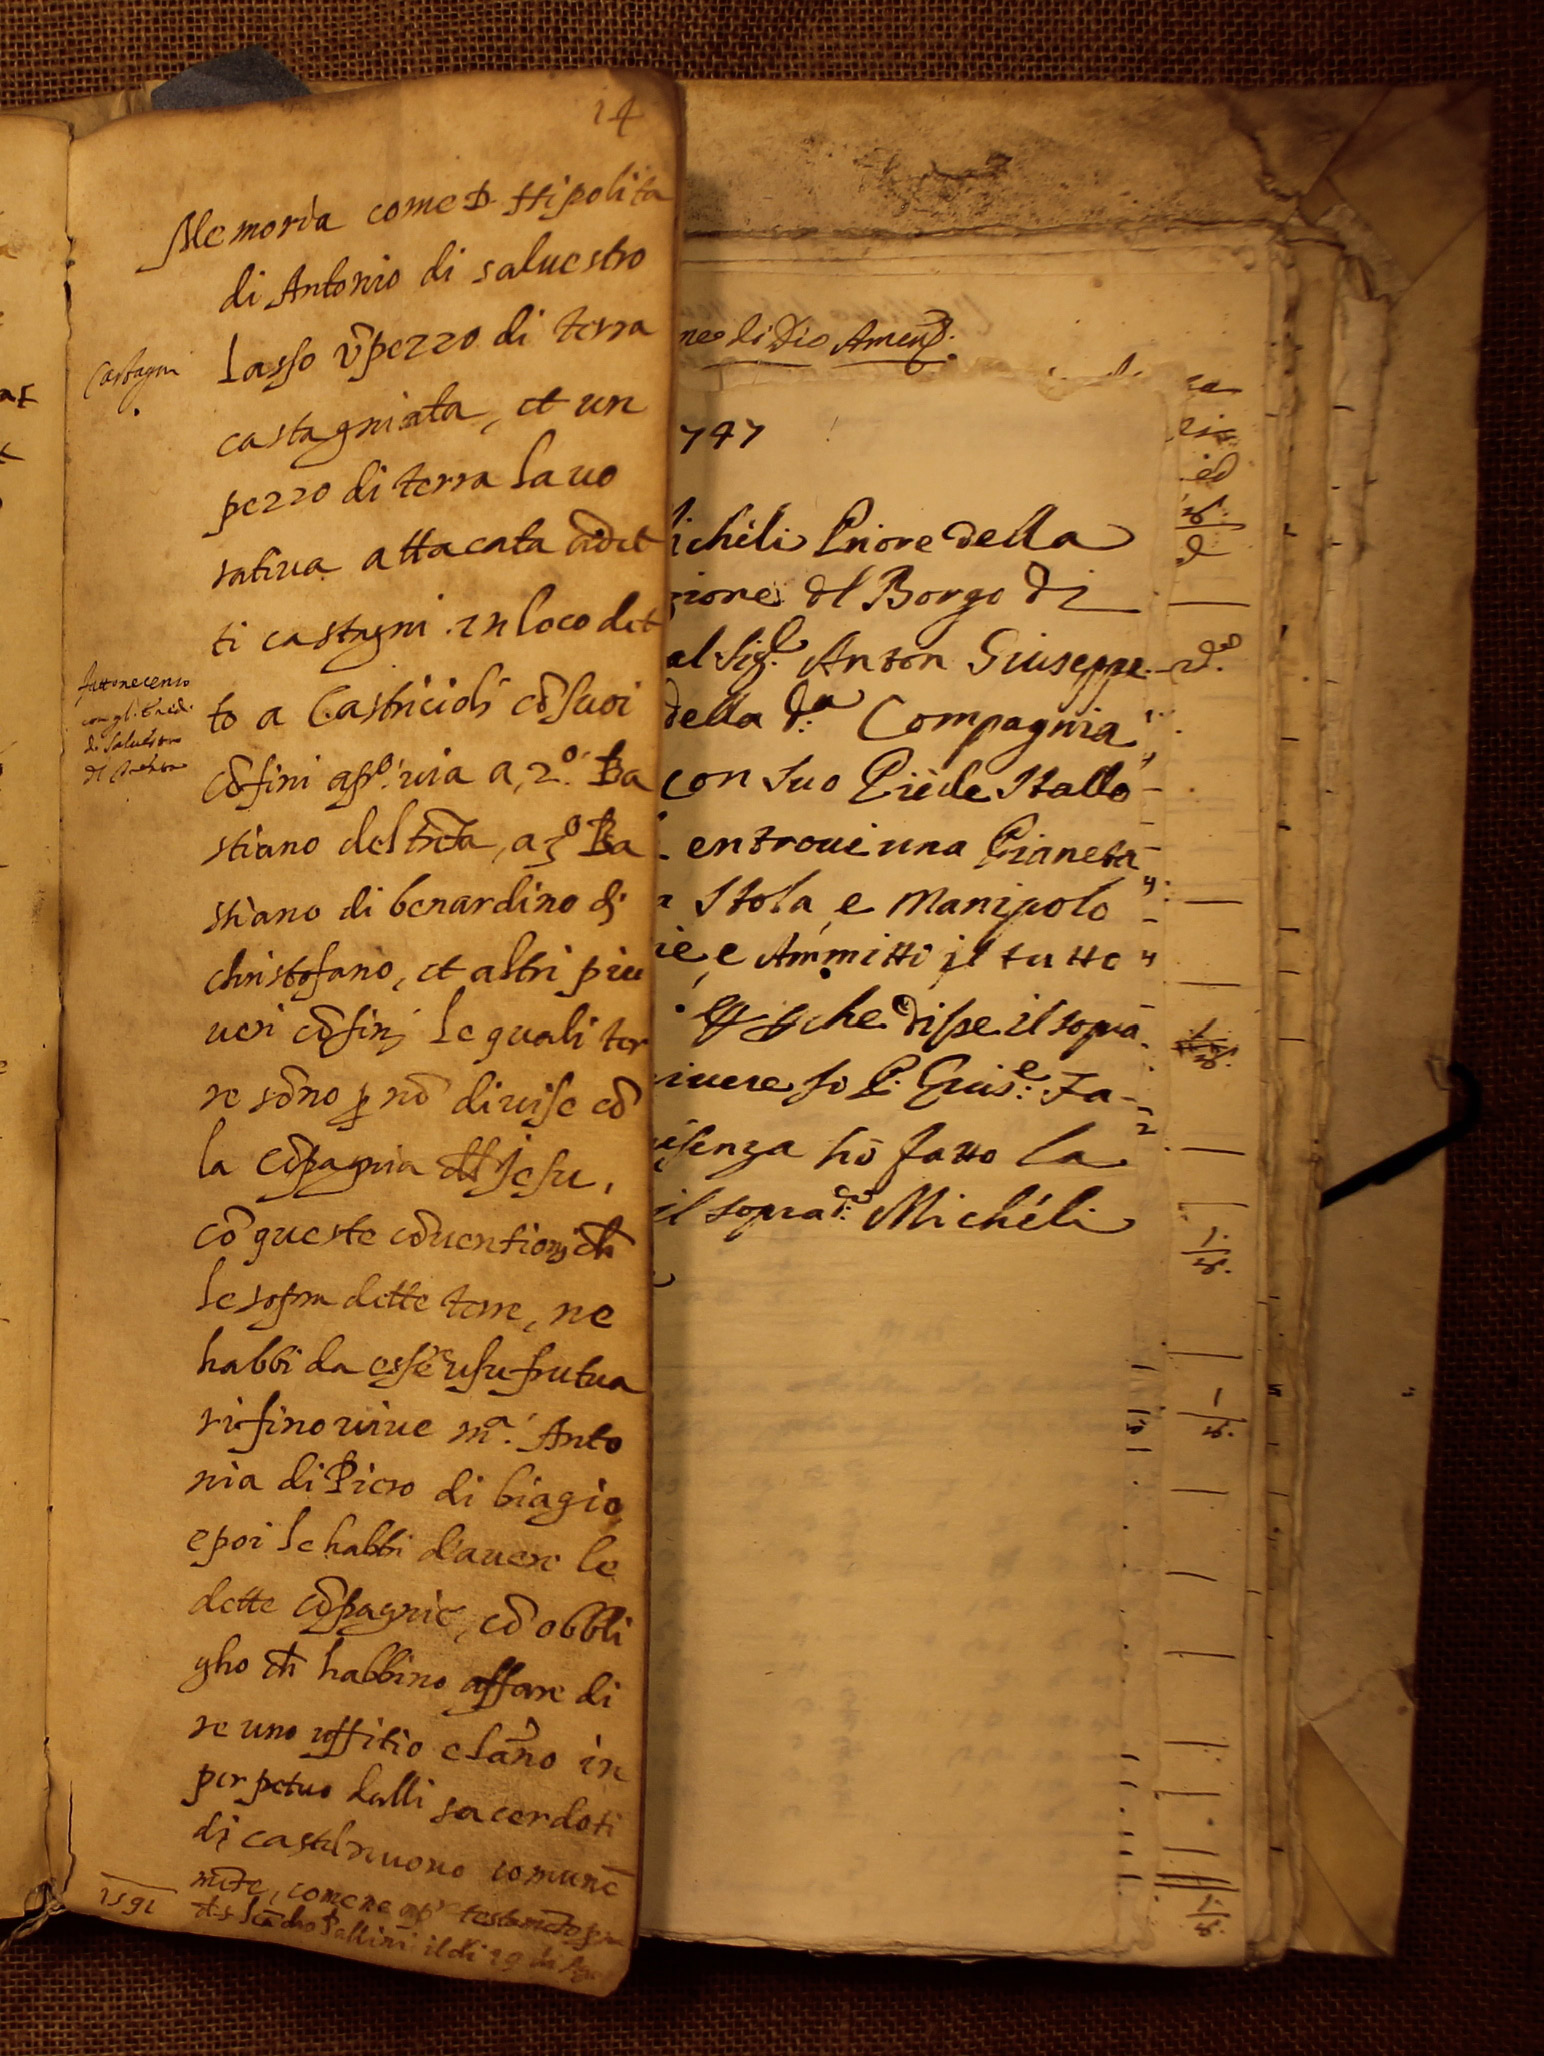 14
Memoria come D. Hipolita
di Antonio di saluestro
lasso ũ pezzo di terra
castagniata, et un
pezzo di terra lauo
ratiua attacata a det
ti castagni. in loco det
to a Castricioli cõ suoi
cõfini a pº. uia a, 2º. Ba
stiano del, a 3º Ba
stiano di benardino di
christofano, et altri piu
ueri cõfini le quali ter
re sõno p nõ diuise cõ
la cõpagnia del Jesu,
cõ queste cõuentioni ch
le sopra dette terre, ne
habbi da essé usufrutua
ri fino uiue mª. Anto
nia di Piero di biagio,
e poi le habbi d'auere le
dette cõpagnie, cõ obbli
gho ch habbino affare di
re uno uffitio e lãno in
perpetuo dalli sacerdoti
di castelnuouo comunẽ
mẽte, come ne testamẽto
Pellini il di 29 di
Castagni
fattone censo
con gl. Eredi
di Saluestro
1591
ne di Dio Amen
747
icheli Priore della
zione dl Borgo di
al Sig.r Anton Giuseppe
della d.a Compagnia
con suo Piede Stallo
entroui una Pianeta
Stola, e Manipolo
ie e Ammitti il tutto
che disse il sopra
iuere Io P. Guis.e Fa-
senza hò fatto la
il soprad.o Michéli